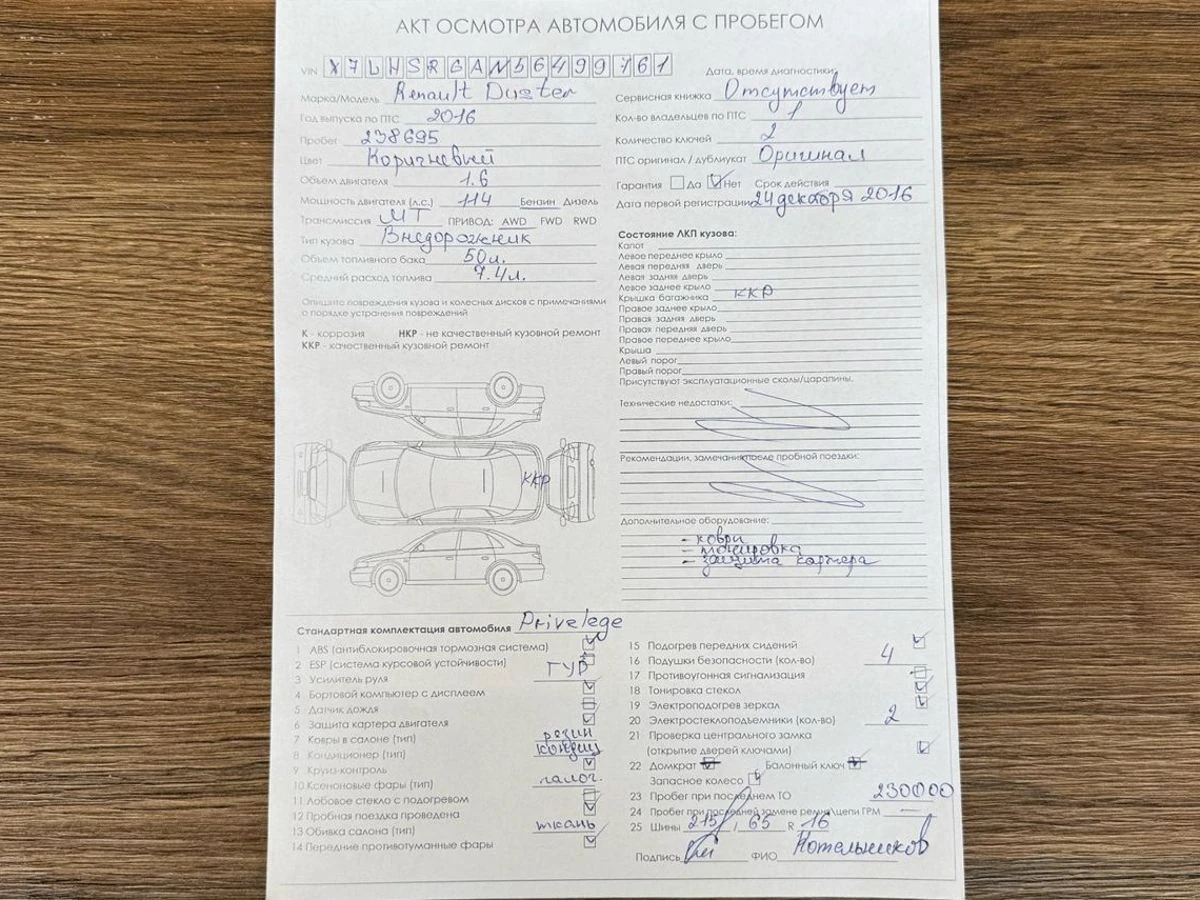 АКТ ОСМОТРА АВТОМОБИЛЯ С ПРОБЕГОМ
VIN X7LHSRGAN56499761
Дата, время диагностики:
Марка/Модель Renault Duster
Год выпуска по ПТС 2016
Пробег 238695
Цвет Коричневый
Объем двигателя 1.6
Мощность двигателя (л.с.) 114 Бензин Дизель
Трансмиссия МТ ПРИВОД: AWD FWD RWD
Тип кузова Внедорожник
Объем топливного бака 50л.
Средний расход топлива 7.4л.
Опишите повреждения кузова и колесных дисков с примечаниями
о порядке устранения повреждений
К - коррозия НКР - не качественный кузовной ремонт
ККР - качественный кузовной ремонт
ККР
Сервисная книжка Отсутствует
Кол-во владельцев по ПТС 1
Количество ключей 2
ПТС оригинал / дубликат Оригинал
Гарантия Да Нет Срок действия
Дата первой регистрации 24 декабря 2016
Состояние ЛКП кузова:
Капот
Левое переднее крыло
Левая передняя дверь
Левая задняя дверь
Левое заднее крыло
Крышка багажника ККР
Правое заднее крыло
Правая задняя дверь
Правая передняя дверь
Правое переднее крыло
Крыша
Левый порог
Правый порог
Присутствуют эксплуатационные сколы/царапины.
Технические недостатки:
Рекомендации, замечания после пробной поездки:
Дополнительное оборудование:
- коври
- тонировка
- защита картера
Стандартная комплектация автомобиля Privelege
1 ABS (антиблокировочная тормозная система)
2 ESP (система курсовой устойчивости)
3 Усилитель руля ГУР
4 Бортовой компьютер с дисплеем
5 Датчик дождя
6 Защита картера двигателя
7 Ковры в салоне (тип) резин
8 Кондиционер (тип) кондиц
9 Круиз-контроль
10 Ксеноновые фары (тип) галог.
11 Лобовое стекло с подогревом
12 Пробная поездка проведена
13 Обивка салона (тип) ткань
14 Передние противотуманные фары
15 Подогрев передних сидений
16 Подушки безопасности (кол-во) 4
17 Противоугонная сигнализация
18 Тонировка стекол
19 Электроподогрев зеркал
20 Электростеклоподъемники (кол-во) 2
21 Проверка центрального замка
(открытие дверей ключами)
22 Домкрат Балонный ключ
Запасное колесо
23 Пробег при последнем ТО 230000
24 Пробег при последней замене ремня\цепи ГРМ —
25 Шины 215 / 65 R 16
Подпись ФИО Котельников